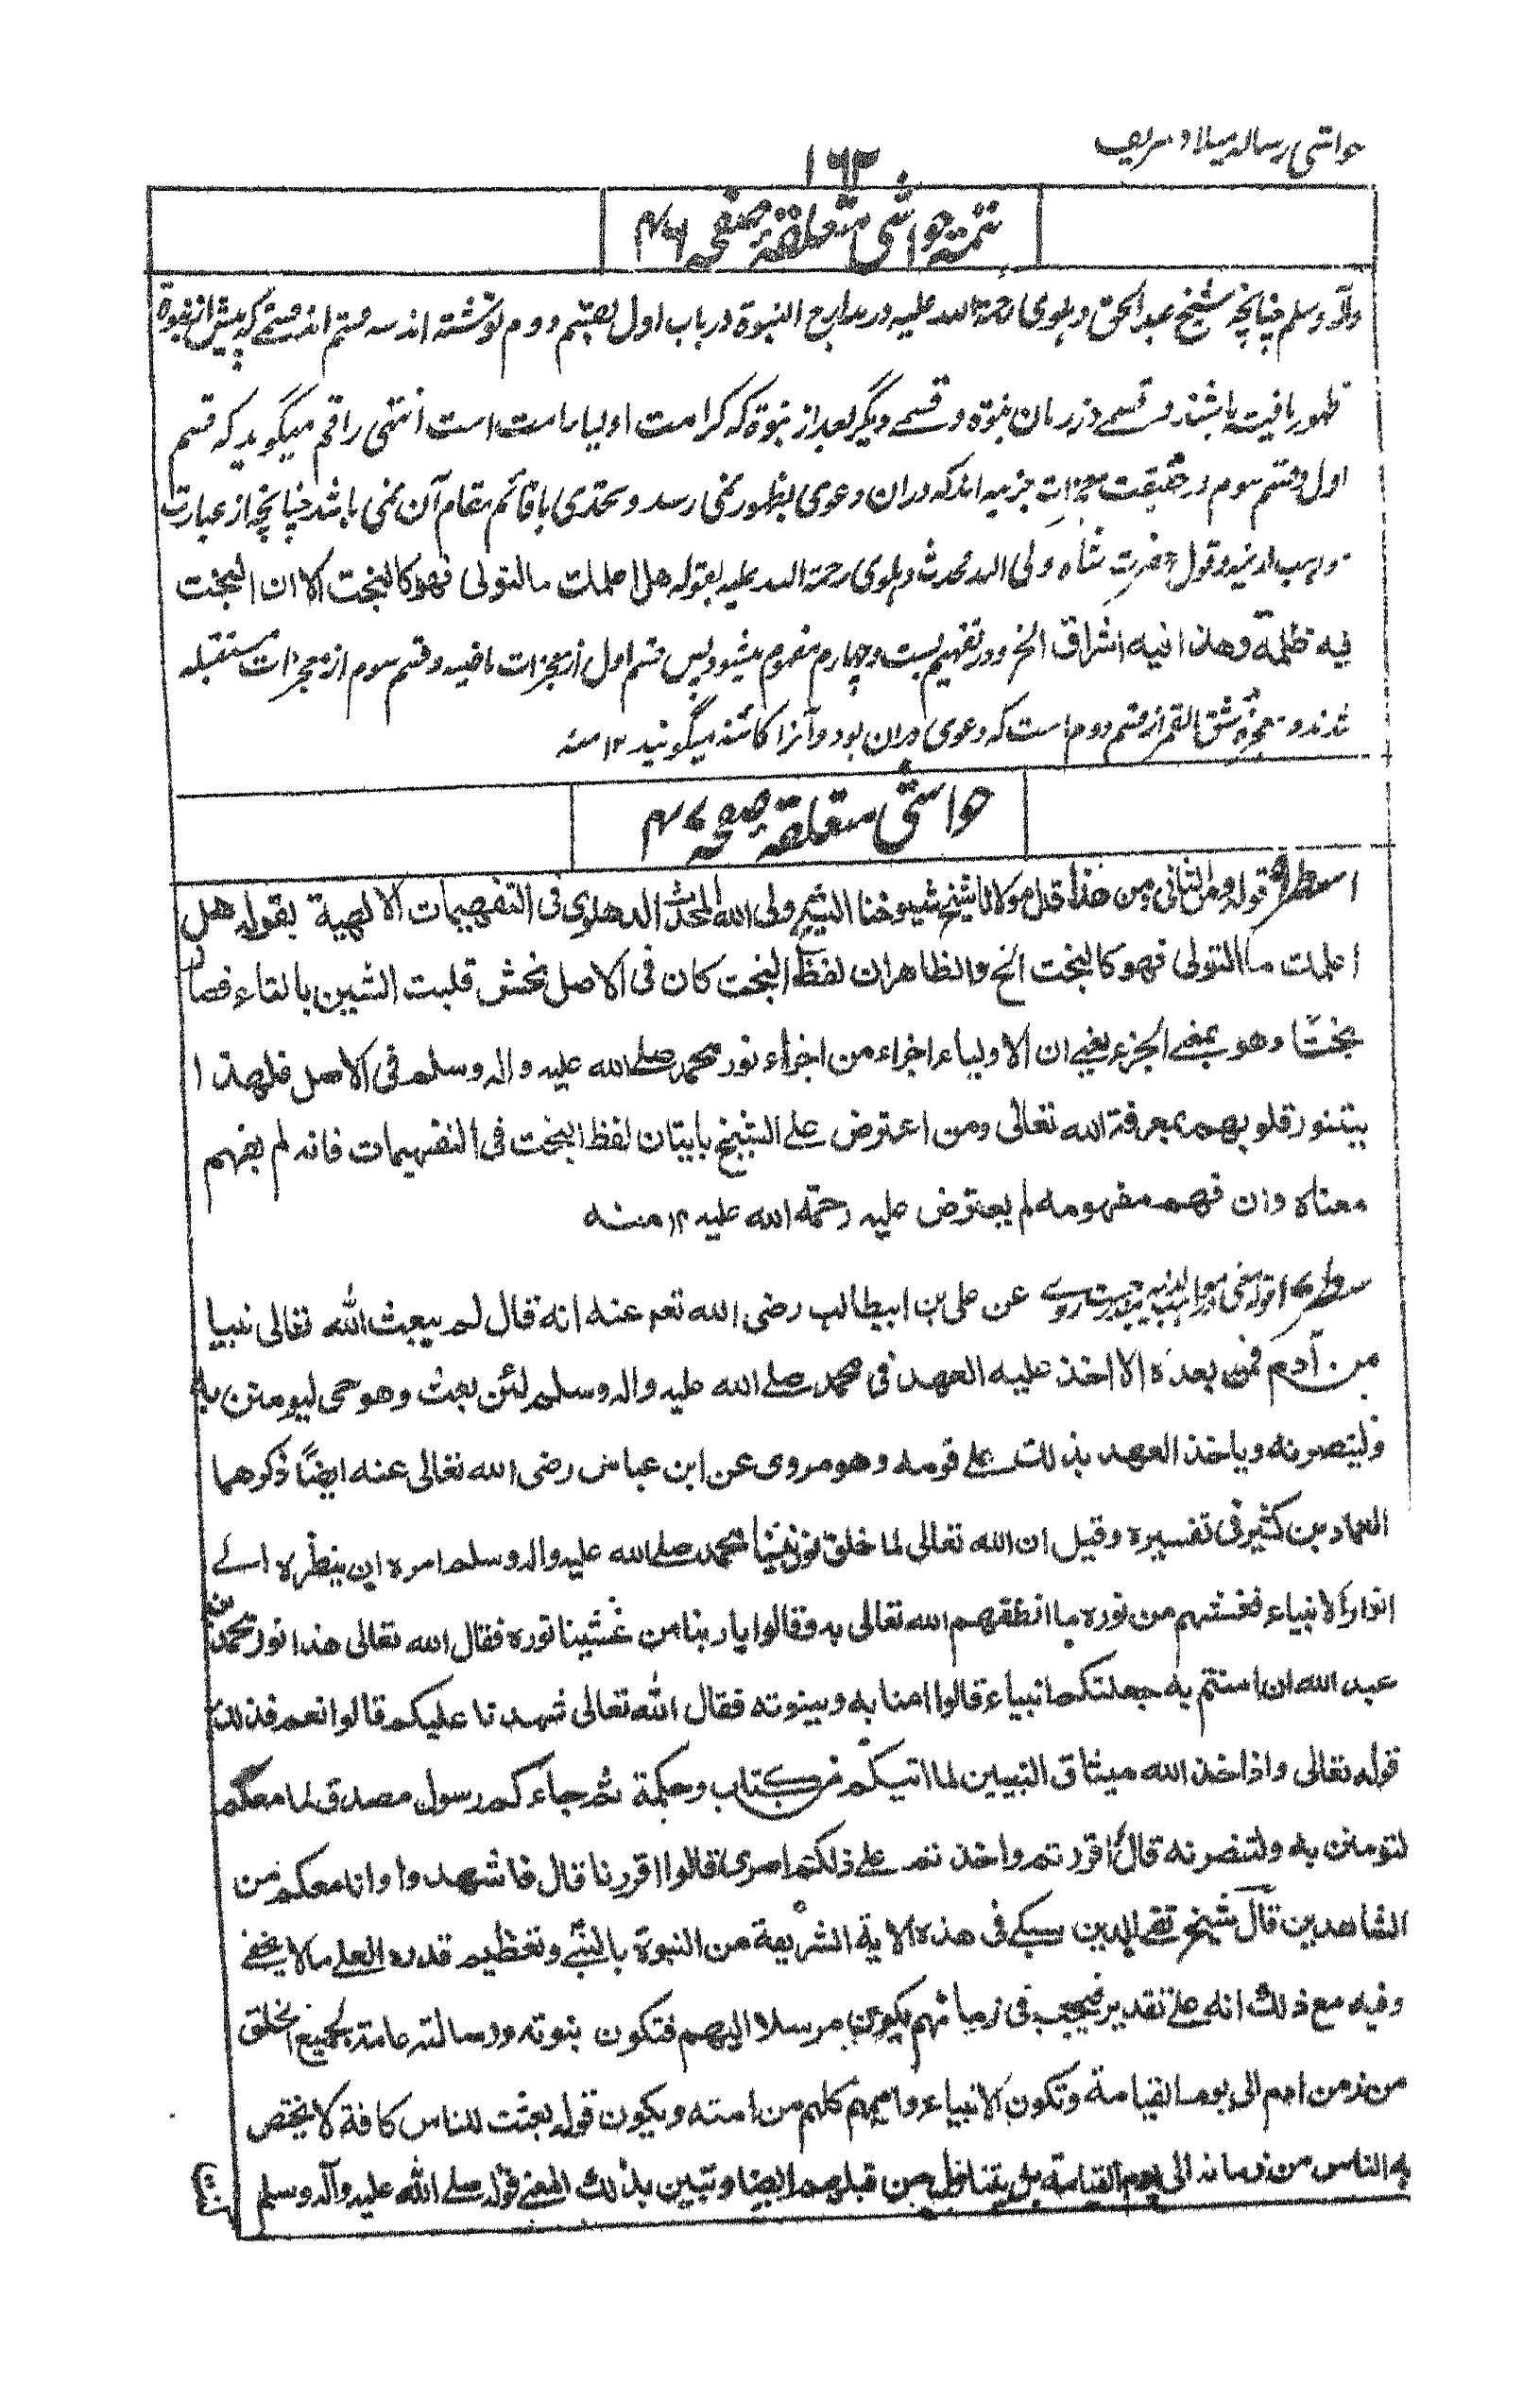 حواشی رسالہ میلاد شریف
۱۶۳
تتمۃ حواشی متعلقۂ صفحہ ۴۶
وآلہ وسلم چنانچہ شیخ عبد الحق دہلوی رحمۃ اللہ علیہ در مدارج النبوۃ در باب اول بقسم دوم نوشتہ اند سہ قسم اند قسمے کہ پیش از نبوۃ
ظہور یافتہ باشند و قسمے در زمان نبوۃ و قسمے دیگر بعد از نبوۃ کہ کرامت اولیا امت است انتہی راقم میگوید کہ قسم
اول و قسم سوم در حقیقت معجزات جزئیہ اند کہ دران دعوی بظہور نمی رسد و تحدی با قائم مقام آن نمی باشد چنانچہ از عبارت
مواہب لدنیہ و قول حضرت شاہ ولی اللہ محدث دہلوی رحمۃ اللہ علیہ بقولہ هل اعلمك ما التولی فهو كالبخت الا ان البخت
فیه ظلمة وهذا فیه اشراق الخ و در تفہیم بست و چہارم مفہوم میشود پس قسم اول از معجزات ماضیہ و قسم سوم از معجزات مستقبلہ
شدند و معجزۂ شق القمر از قسم دوم است کہ دعوی دران بود و آنرا کائنہ میگویند ۱۲ منہ
حواشی متعلقۂ صفحہ ۴۷
سطر قوله ومن الثانی ومن هذا قال مولانا شیخ شیوخنا الشیخ ولی الله المحدث الدهلوی فی التفهیمات الالهیة بقوله هل
اعلمك ما التولی فهو كالبخت الخ والظاهر ان لفظ البخت كان فی الاصل بخش قلبت الشین بالتاء فصار
بختا وهو بمعنے الجزء یعنے ان الاولیاء اجزاء من اجزاء نور محمد صلے الله علیه واله وسلم فی الاصل فلهذا ا
یتنور قلوبهم بمعرفة الله تعالی ومن اعترض علے الشیخ باتیان لفظ البخت فی التفهیمات فانه لم یفهم
معناه وان فهم مفهومه لم یعترض علیه رحمة الله علیه ۱۲ منه
سطر عن علی بن ابیطالب رضی الله تعم عنه انه قال لم یبعث الله تعالی نبیا
من آدم فمن بعده الا اخذ علیه العهد فی محمد صلے الله علیه واله وسلم لئن بعث وهو حی لیومنن به
ولینصرنه ویاخذ العهد بذلك علے قومه وهو مروی عن ابن عباس رضی الله تعالی عنه ایضًا ذكرهما
العماد بن كثیر فی تفسیره وقیل ان الله تعالی لما خلق نور نبینا محمد صلے الله علیه واله وسلم امره ان ینظر الے
انوار الانبیاء فغشیهم من نوره ما انطقهم الله تعالی به وقالوا یا ربنا من غشینا نوره فقال الله تعالی هذا نور محمد بن
عبد الله ان امنتم به جعلتكم انبیاء قالوا امنا به وبنبوته فقال الله تعالی شهدنا علیكم قالوا نعم فذلك
قوله تعالی واذ اخذ الله میثاق النبیین لما اتیتكم من كتاب وحكمة ثم جاءكم رسول مصدق لما معكم
لتومنن به ولتنصرنه قال أاقررتم واخذتم علے ذلكم اصری قالوا اقررنا قال فاشهدوا وانا معكم من
الشاهدین قال شیخ تقی الدین سبكے فی هذه الایة الشریفة من النبوة بالنبی وتعظیم قدره العلے ما لا یخفے
وفیه مع ذلك انه علے تقدیر مجیئه فی زمانهم یكون مرسلا الیهم فتكون نبوته ورسالته عامة لجمیع الخلق
من زمن ادم الی یوم القیامة وتكون الانبیاء واممهم كلهم من امته ویكون قوله بعثت للناس كافة لا یختص
به الناس من زمانه الی یوم القیامة بل یتناول من قبلهم ایضا وتبین بذلك المعنے قوله صلے الله علیه وآله وسلم